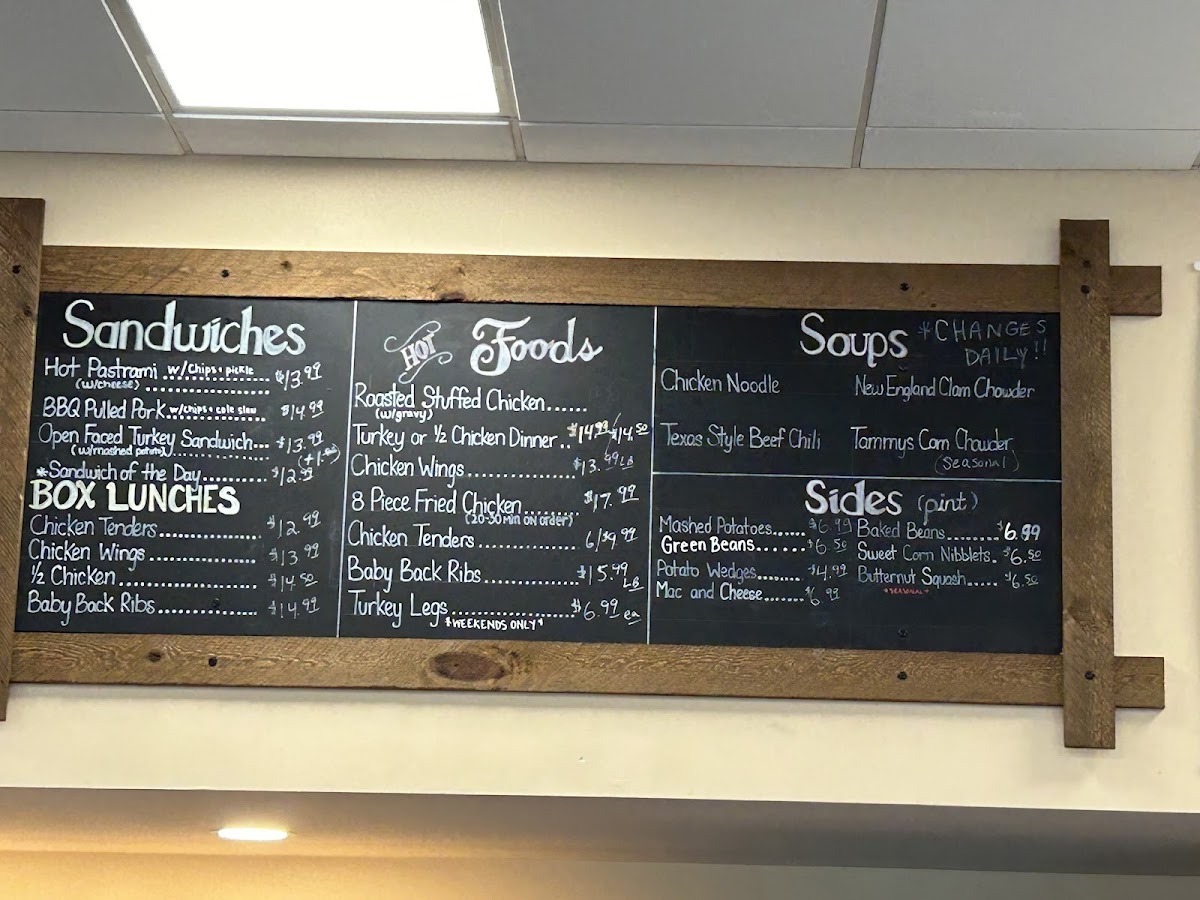 Sandwiches
Hot Pastrami w/chips + pickle ........ $13.99
(w/cheese)
BBQ Pulled Pork w/chips + cole slaw $14.99
Open Faced Turkey Sandwich... $13.99
(w/mashed potato) (+1.50)
*Sandwich of the Day......... $12.99
BOX LUNCHES
Chicken Tenders............ $12.99
Chicken Wings............ $13.99
1/2 Chicken............ $14.50
Baby Back Ribs............ $14.99
HOT Foods
Roasted Stuffed Chicken......
(w/gravy)
Turkey or 1/2 Chicken Dinner.. $14.99/$14.50
Chicken Wings............ $13.99 LB
8 Piece Fried Chicken........ $17.99
(20-30 Min ON order)
Chicken Tenders............ 6/$9.99
Baby Back Ribs............ $15.99 LB
Turkey Legs............ $6.99 ea
*WEEKENDS ONLY*
Soups *CHANGES
DAILY!!
Chicken Noodle
New England Clam Chowder
Texas Style Beef Chili
Tammys Corn Chowder
(Seasonal)
Sides (pint)
Mashed Potatoes...... $6.99
Green Beans....... $6.50
Potato Wedges........ $4.99
Mac and Cheese....... $6.99
Baked Beans........ $6.99
Sweet Corn Nibblets. $6.50
Butternut Squash..... $6.50
*SEASONAL*